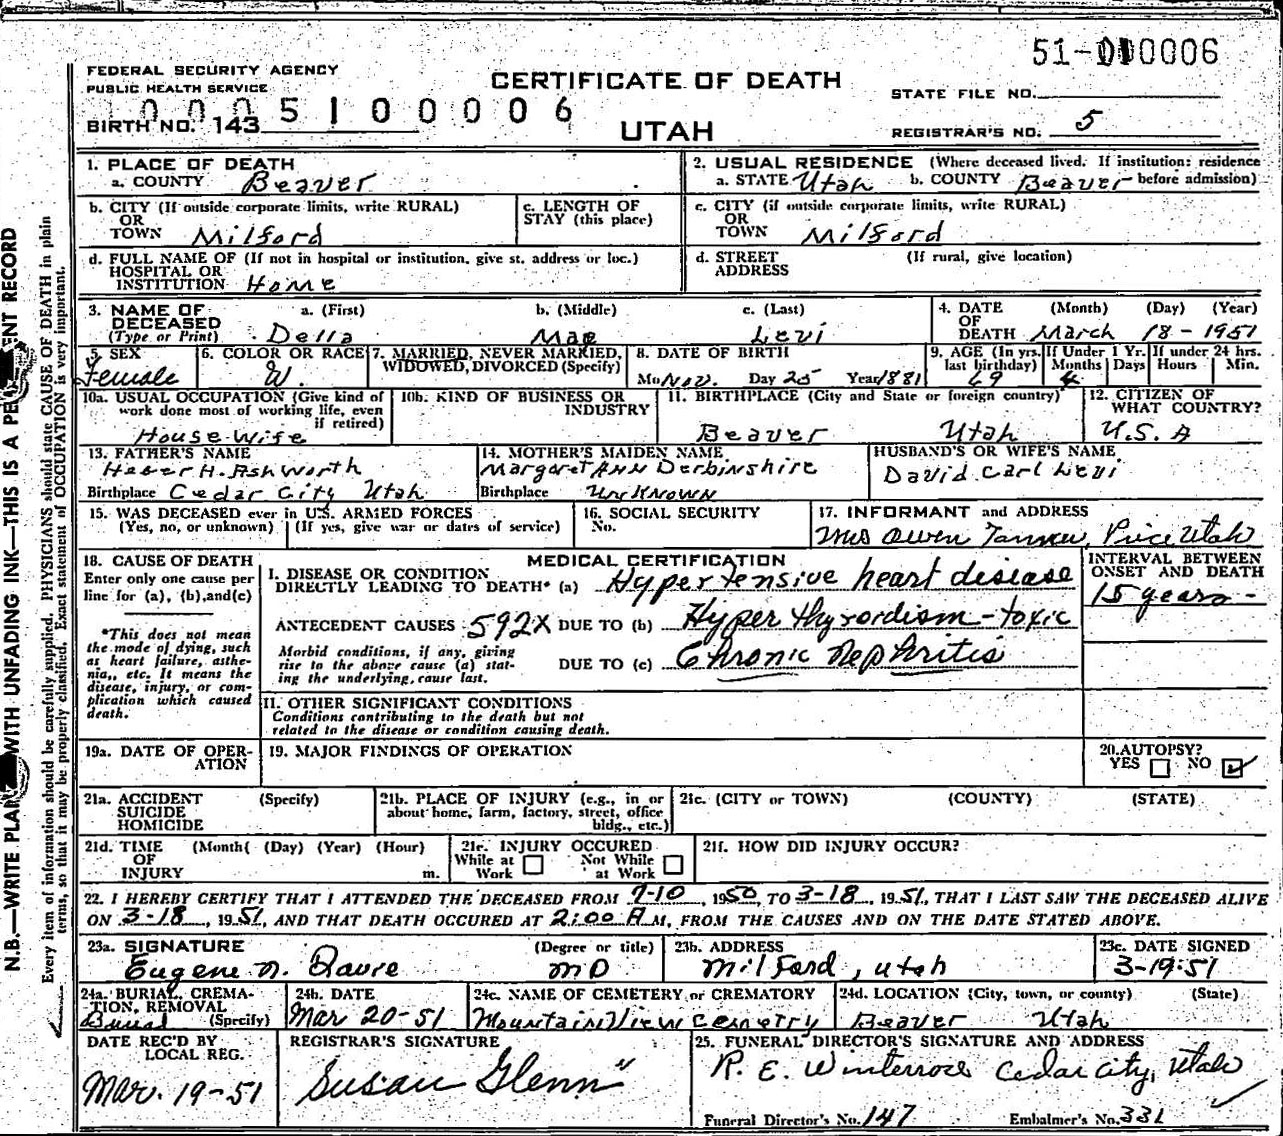 51-010006
FEDERAL SECURITY AGENCY
PUBLIC HEALTH SERVICE
CERTIFICATE OF DEATH
STATE FILE NO.
0005100006
BIRTH NO. 143
UTAH
REGISTRAR'S NO. 5
N.B.—WRITE PLAINLY WITH UNFADING INK—THIS IS A PERMANENT RECORD
Every item of information should be carefully supplied. PHYSICIANS should state CAUSE OF DEATH in plain
terms, so that it may be properly classified. Exact statement of OCCUPATION is very important.
1. PLACE OF DEATH
a. COUNTY Beaver
2. USUAL RESIDENCE (Where deceased lived. If institution: residence
a. STATE Utah b. COUNTY Beaver before admission)
b. CITY (If outside corporate limits, write RURAL)
OR
TOWN Milford
c. LENGTH OF
STAY (this place)
c. CITY (if outside corporate limits, write RURAL)
OR
TOWN Milford
d. FULL NAME OF (If not in hospital or institution, give st. address or loc.)
HOSPITAL OR
INSTITUTION Home
d. STREET (If rural, give location)
ADDRESS
3. NAME OF a. (First) b. (Middle) c. (Last)
DECEASED
(Type or Print) Della Mae Levi
4. DATE (Month) (Day) (Year)
OF
DEATH March 18-1951
5. SEX
Female
6. COLOR OR RACE
W.
7. MARRIED, NEVER MARRIED,
WIDOWED, DIVORCED (Specify)
8. DATE OF BIRTH
Mo. Nov. Day 25 Year 1881
9. AGE (In yrs. last birthday)
69
If Under 1 Yr.
Months Days
4
If under 24 hrs.
Hours Min.
10a. USUAL OCCUPATION (Give kind of
work done most of working life, even
if retired)
House-wife
10b. KIND OF BUSINESS OR
INDUSTRY
11. BIRTHPLACE (City and State or foreign country)
Beaver Utah
12. CITIZEN OF
WHAT COUNTRY?
U.S.A
13. FATHER'S NAME
Heber H. Ashworth
Birthplace Cedar City Utah
14. MOTHER'S MAIDEN NAME
Margaret Ann Derbinshire
Birthplace Unknown
HUSBAND'S OR WIFE'S NAME
David Carl Levi
15. WAS DECEASED ever in U.S. ARMED FORCES
(Yes, no, or unknown) (If yes, give war or dates of service)
16. SOCIAL SECURITY
No.
17. INFORMANT and ADDRESS
Mrs Owen Tanner, Price Utah
18. CAUSE OF DEATH
Enter only one cause per
line for (a), (b), and (c)
*This does not mean
the mode of dying, such
as heart failure, asthe-
nia, etc. It means the
disease, injury, or com-
plication which caused
death.
MEDICAL CERTIFICATION
I. DISEASE OR CONDITION
DIRECTLY LEADING TO DEATH* (a) Hypertensive heart disease
ANTECEDENT CAUSES 592X DUE TO (b) Hyper thyrordism - toxic
Morbid conditions, if any, giving
rise to the above cause (a) stat-
ing the underlying cause last.
DUE TO (c) Chronic Nephritis
INTERVAL BETWEEN
ONSET AND DEATH
15 years -
II. OTHER SIGNIFICANT CONDITIONS
Conditions contributing to the death but not
related to the disease or condition causing death.
19a. DATE OF OPER-
ATION
19. MAJOR FINDINGS OF OPERATION
20. AUTOPSY?
YES NO
21a. ACCIDENT (Specify)
SUICIDE
HOMICIDE
21b. PLACE OF INJURY (e.g., in or
about home, farm, factory, street, office
bldg., etc.)
21c. (CITY or TOWN) (COUNTY) (STATE)
21d. TIME (Month( (Day) (Year) (Hour)
OF
INJURY m.
21e. INJURY OCCURED
While at Work
Not While at Work
21f. HOW DID INJURY OCCUR?
22. I HEREBY CERTIFY THAT I ATTENDED THE DECEASED FROM 7-10, 1950, TO 3-18, 1951, THAT I LAST SAW THE DECEASED ALIVE
ON 3-18, 1951, AND THAT DEATH OCCURED AT 2:00 A M, FROM THE CAUSES AND ON THE DATE STATED ABOVE.
23a. SIGNATURE (Degree or title)
Eugene N. MD
23b. ADDRESS
Milford, Utah
23c. DATE SIGNED
3-19-51
24a. BURIAL, CREMA-
TION, REMOVAL
Burial (Specify)
24b. DATE
Mar 20-51
24c. NAME OF CEMETERY or CREMATORY
Mountain View Cemetry
24d. LOCATION (City, town, or county) (State)
Beaver Utah
DATE REC'D BY
LOCAL REG.
Mar. 19-51
REGISTRAR'S SIGNATURE
Susan Glenn
25. FUNERAL DIRECTOR'S SIGNATURE AND ADDRESS
R. E. Winterrose Cedar City, Utah
Funeral Director's No. 147 Embalmer's No. 331